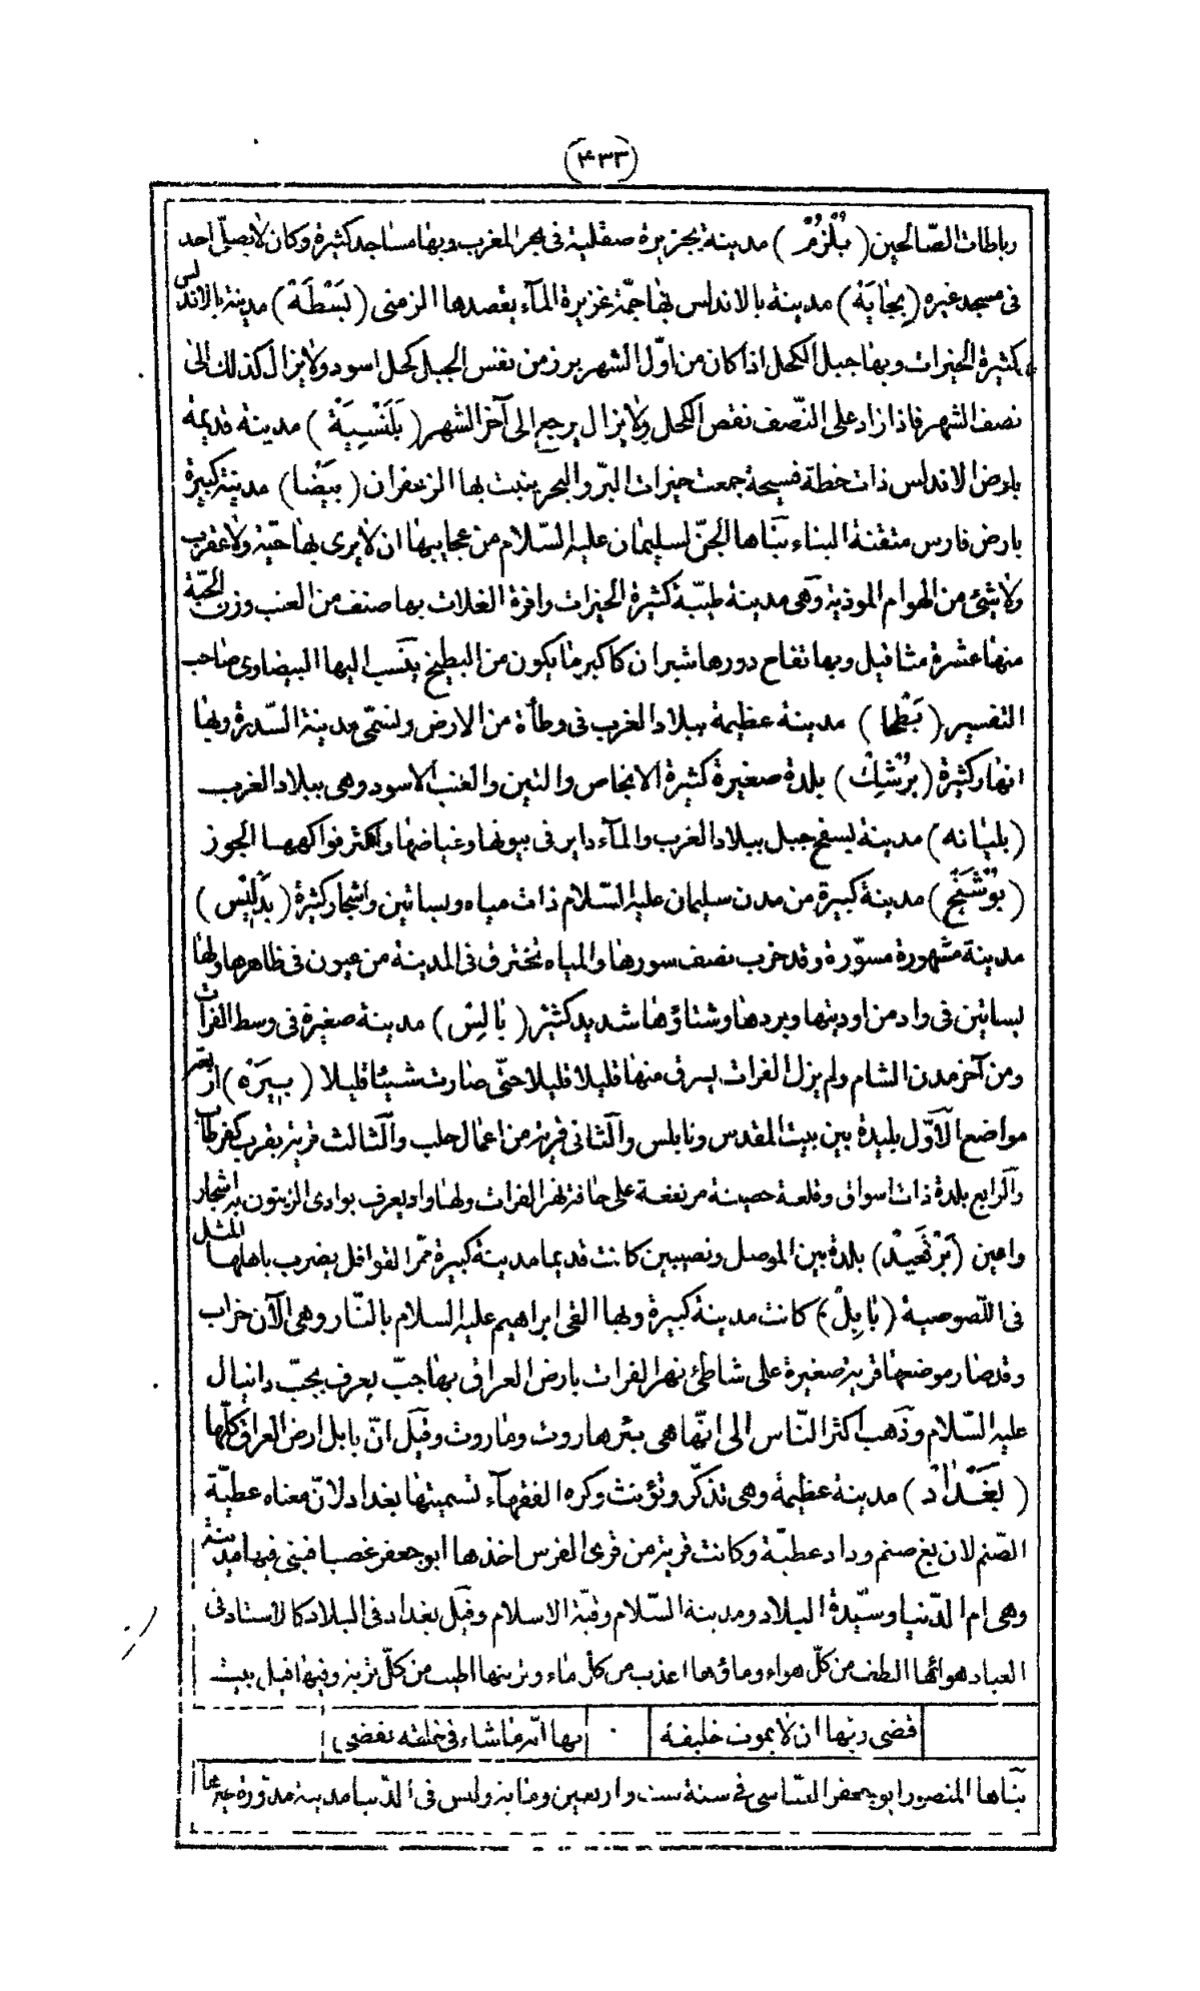 (۴۳۳)
رباطات الصّالحین (بُلْرُمْ) مدینة بجزیرة صقلیة فی بحر المغرب وبها مساجد کثیرة وکان لا یصلّی احد
فی مسجد غیره (بِجٰایَةْ) مدینة بالاندلس بها حمّة غزیرة المآء یقصدها الزمنی (بَسْطَةْ) مدینة بالاندلس
کثیرة الخیرات وبها جبل الکحل اذا کان من اوّل الشهر برز من نفس الجبل کحل اسود ولا یزال کذلک الی
نصف الشهر فاذا زاد علی النّصف نقص الکحل ولا یزال یرجع الی آخر الشهر (بَلَنْسِیَةْ) مدینة قدیمة
بارض الاندلس ذات خطة فسیحة جمعت خیرات البرّ والبحر ینبت بها الزعفران (بَیْضٰا) مدینة کبیرة
بارض فارس متقنة البناء بَنٰاها الجنّ لسلیمان علیه السّلام من عجایبها ان لا یری بها حیّة ولا عقرب
ولا شیئ من الهوام الموذیة وهی مدینة طیّبة کثیرة الخیرات وافرة الغلات بها صنف من العنب وزن الحبّة
منها عشرة مثاقیل وبها تفاح دورها شبران کاکبر ما یکون من البطیخ ینسب الیها البیضاوی صاحب
التفسیر (بَطْحا) مدینة عظیمة ببلاد الغرب فی وطأة من الارض وتسمّی مدینة السّدرة وبها
انهار کثیرة (بُرُشْکْ) بلدة صغیرة کثیرة الانجاص والتین والعنب الاسود وهی ببلاد الغرب
(بلیانه) مدینة بسفح جبل ببلاد الغرب والمآء دایر فی بیوتها وغیاضها واکثر فواکهها الجوز
(بُوْشَنْج) مدینة کبیرة من مدن سلیمان علیه السّلام ذات میاه وبساتین واشجار کثیرة (بَدْلِیْس)
مدینة مشهورة مسوّرة وقد خرب نصف سورها والمیاه تخترق فی المدینة من عیون فی ظاهرها ولها
بساتین فی واد من اودیتها وبردها وشتاؤها شدید کثیر (بٰالِسْ) مدینة صغیرة فی وسط الفرات
ومن آخر مدن الشام ولم یزل الفرات یسرق منها قلیلا قلیلا حتّی صارت شیئا قلیلا (بِیْرَهْ) اربعة
مواضع الاَوّل بلیدة بین بیت المقدس ونابلس والثانی قریة من اعمال حلب والثالث قریة بقرب کفرطاب
والرابع بلدة ذات اسواق وقلعة حصینة مرتفعة علی حافة نهر الفرات ولها واد یعرف بوادی الزیتون به اشجار
واعین (بَرْقَعِیدْ) بلدة بین الموصل ونصیبین کانت قدیما مدینة کبیرة ممّر القوافل یضرب باهلها المثل
فی اللّصوصیة (بٰابِلْ) کانت مدینة کبیرة وبها القی ابراهیم علیه السلام بالنّار وهی الآن خراب
وقد صار موضعها قریة صغیرة علی شاطئ نهر الفرات بارض العراق بها جبّ یعرف بجبّ دانیال
علیه السّلام وذهب اکثر النّاس الی انّها هی بئر هاروت وماروت وقیل انّ بابل ارض العراق کلّها
(بَغْدٰادْ) مدینة عظیمة وهی تذکّر وتؤنث وکره الفقهآء تسمیتها بغداد لانّ معناه عطیّة
الصّنم لان بغ صنم وداد عطیّة وکانت قریة من قری الفرس اخذها ابو جعفر غصبا فبنی فیها مدینة
وهی ام الدّنیا وسیّدة البلاد ومدینة السّلام وقبّة الاسلام وقیل بغداد فی البلاد کالاستاد فی
العباد هوائها الطف من کلّ هواء وماؤها اعذب من کل ماء وتربتها اطیب من کلّ تربة وفیها قیل بیت
قضی ربّها ان لا یموت خلیفة بها انّه ما شاء فی خلقه یقضی
بَنٰاها المنصور ابو جعفر العبّاسی فی سنة ست واربعین ومایة ولیس فی الدّنیا مدینة مدوّرة غیرها